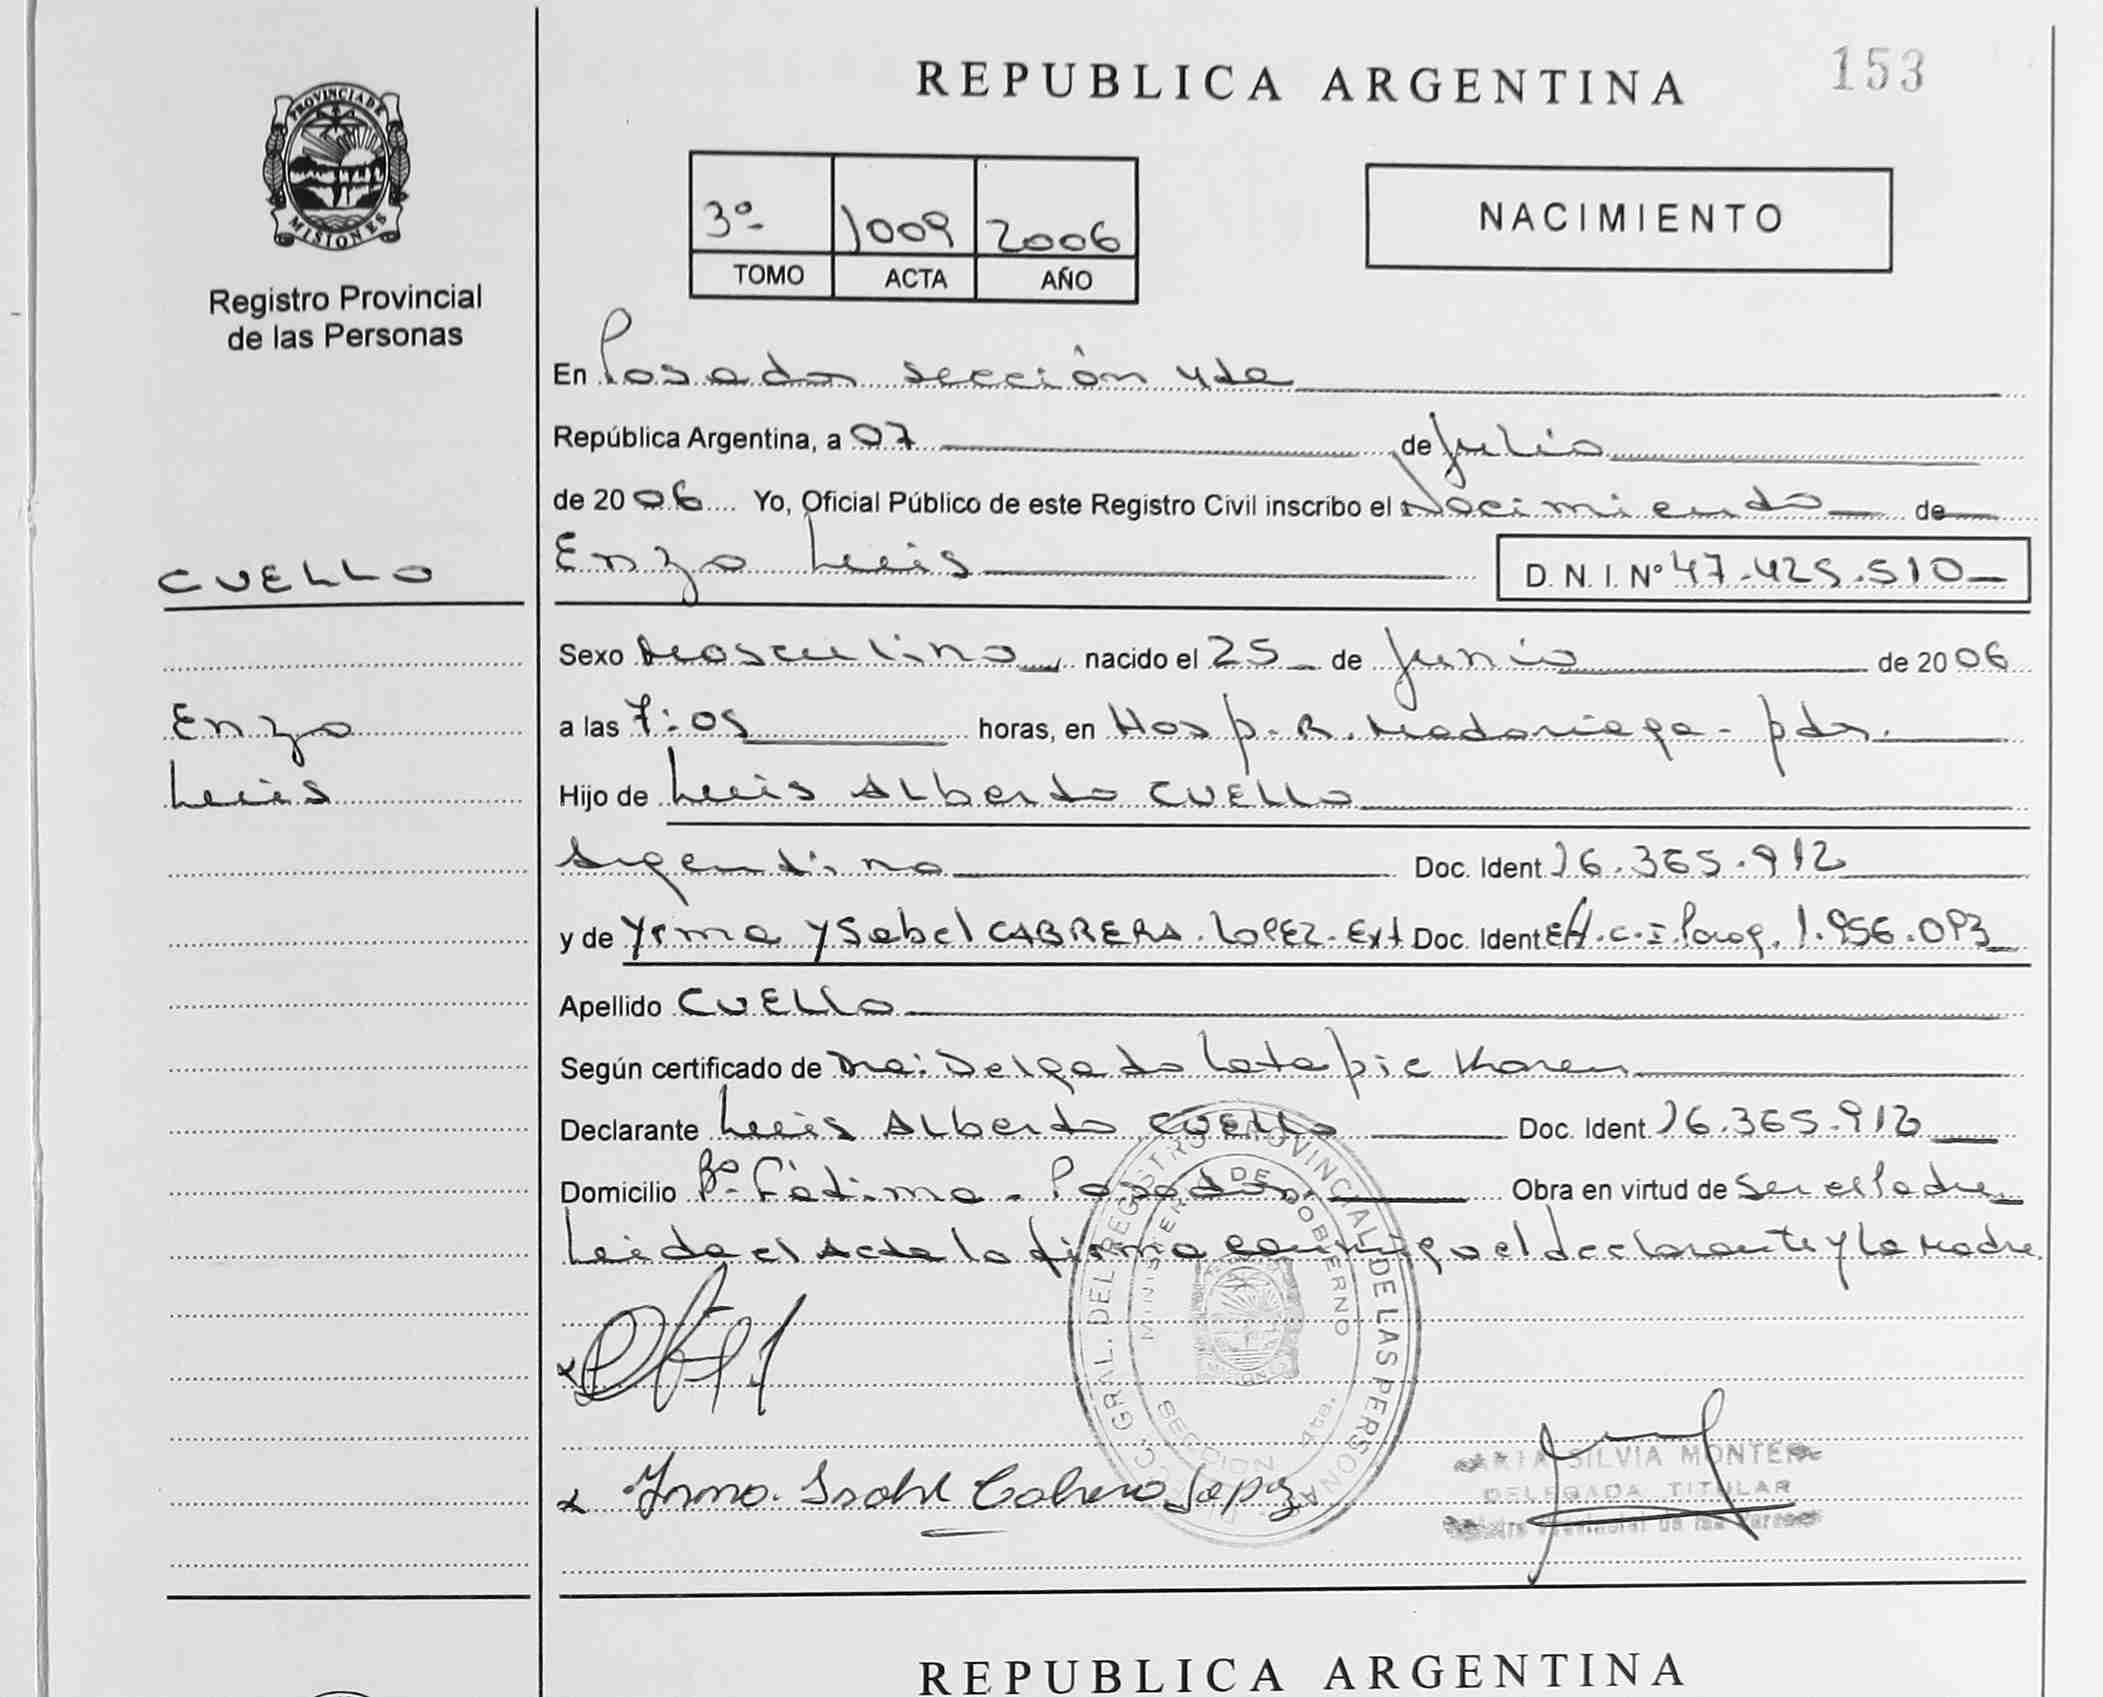 153
REPUBLICA ARGENTINA
PROVINCIA DE
MISIONES
Registro Provincial
de las Personas
3º 1009 2006
TOMO ACTA AÑO
NACIMIENTO
En Posadas sección 4ta
República Argentina, a 07 de Julio
de 2006 Yo, Oficial Público de este Registro Civil inscribo el Nacimiento de
CUELLO
Enzo Luis D. N. I. Nº 47.425.510
Sexo Masculino nacido el 25 de Junio de 2006
Enzo
a las 7:05 horas, en Hosp. R. Madariaga - pdas.
Luis
Hijo de Luis Alberto CUELLO
Argentino Doc. Ident 16.365.912
y de Yrma Ysabel CABRERA LOPEZ. Ext Doc. Ident C.I. Parag. 1.956.093
Apellido CUELLO
Según certificado de Dra: Delgado Karen
Declarante Luis Alberto CUELLO Doc. Ident. 16.365.912
Domicilio Bº Fátima - Posadas. Obra en virtud de ser el Padre
Leida el Acta la firma conmigo el declarante y la Madre.
GRAL. DEL REGISTRO PROVINCIAL DE LAS PERSONAS
MINISTERIO DE GOBIERNO
SECCION 4ta.
Irma Isabel Cabrera Lopez
SILVIA MONTE
DELEGADA TITULAR
REPUBLICA ARGENTINA